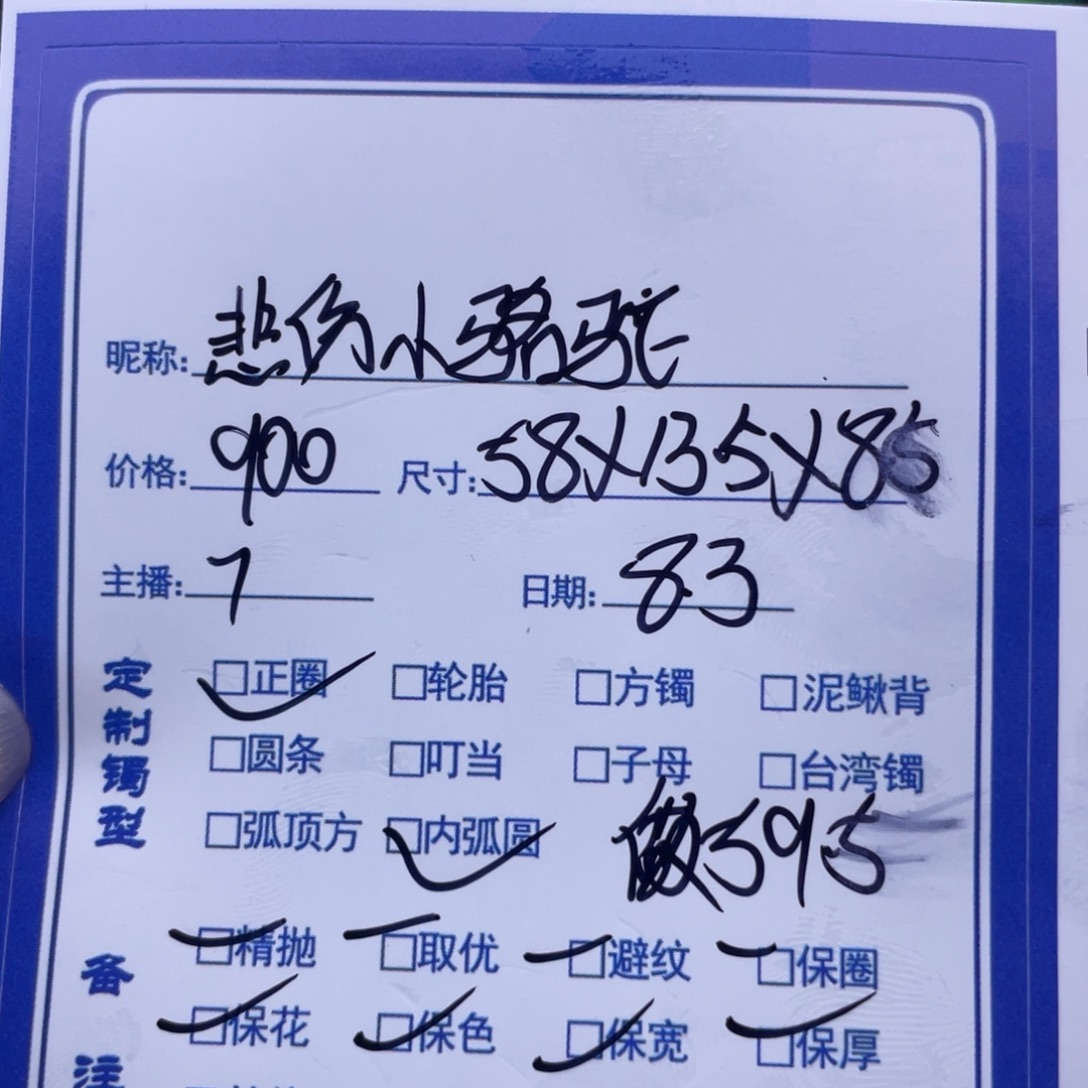 昵称: 悲伤小骆驼
价格: 900 尺寸: 58X135X85
主播: 7 日期: 8.3
定制镯型
□正圈 □轮胎 □方镯 □泥鳅背
□圆条 □叮当 □子母 □台湾镯
□弧顶方 □内弧圆 做595
备注
□精抛 □取优 □避纹 □保圈
□保花 □保色 □保宽 □保厚